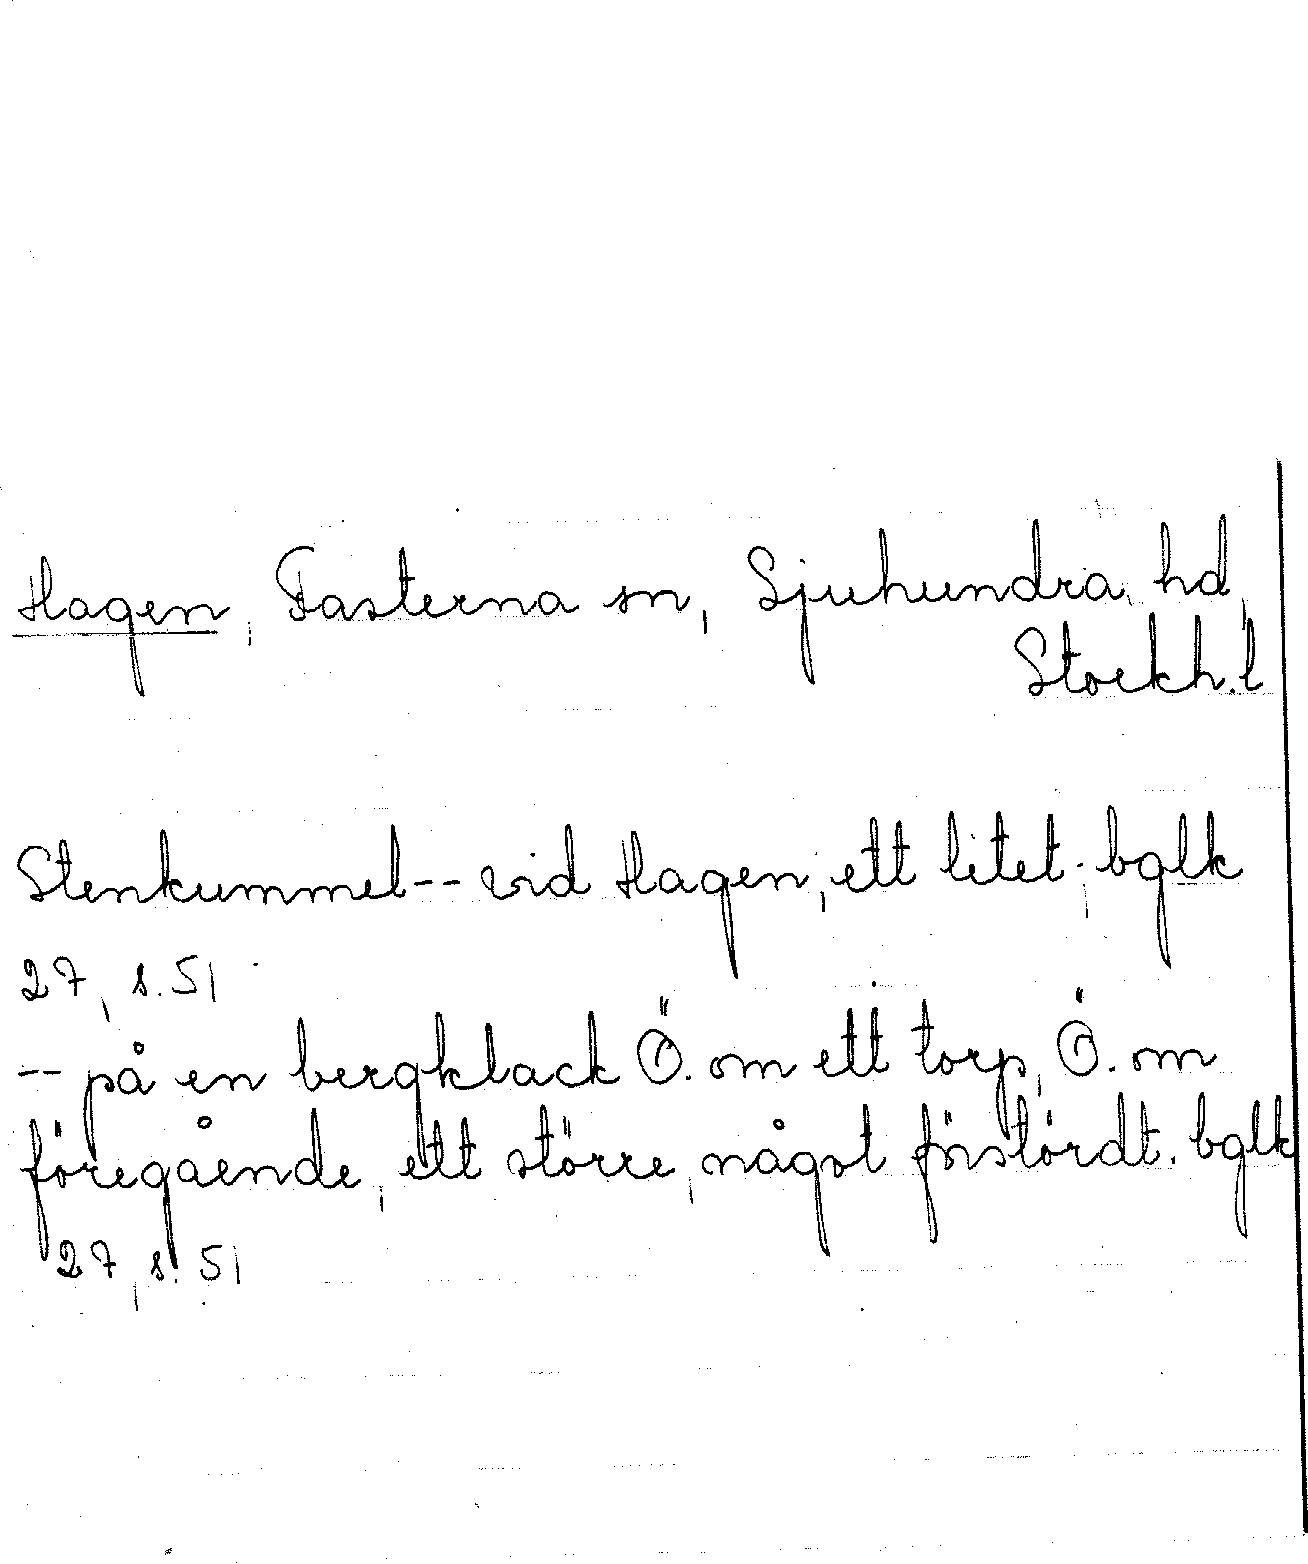 Hagen, Fasterna sn, Sjuhundra hd,
Stockh. l
Stenkummel -- vid Hagen, ett litet; bglk
27, s. 51
-- på en bergklack Ö. om ett torp, Ö. om
föregående, ett större, något förstördt. bglk
27, s. 51